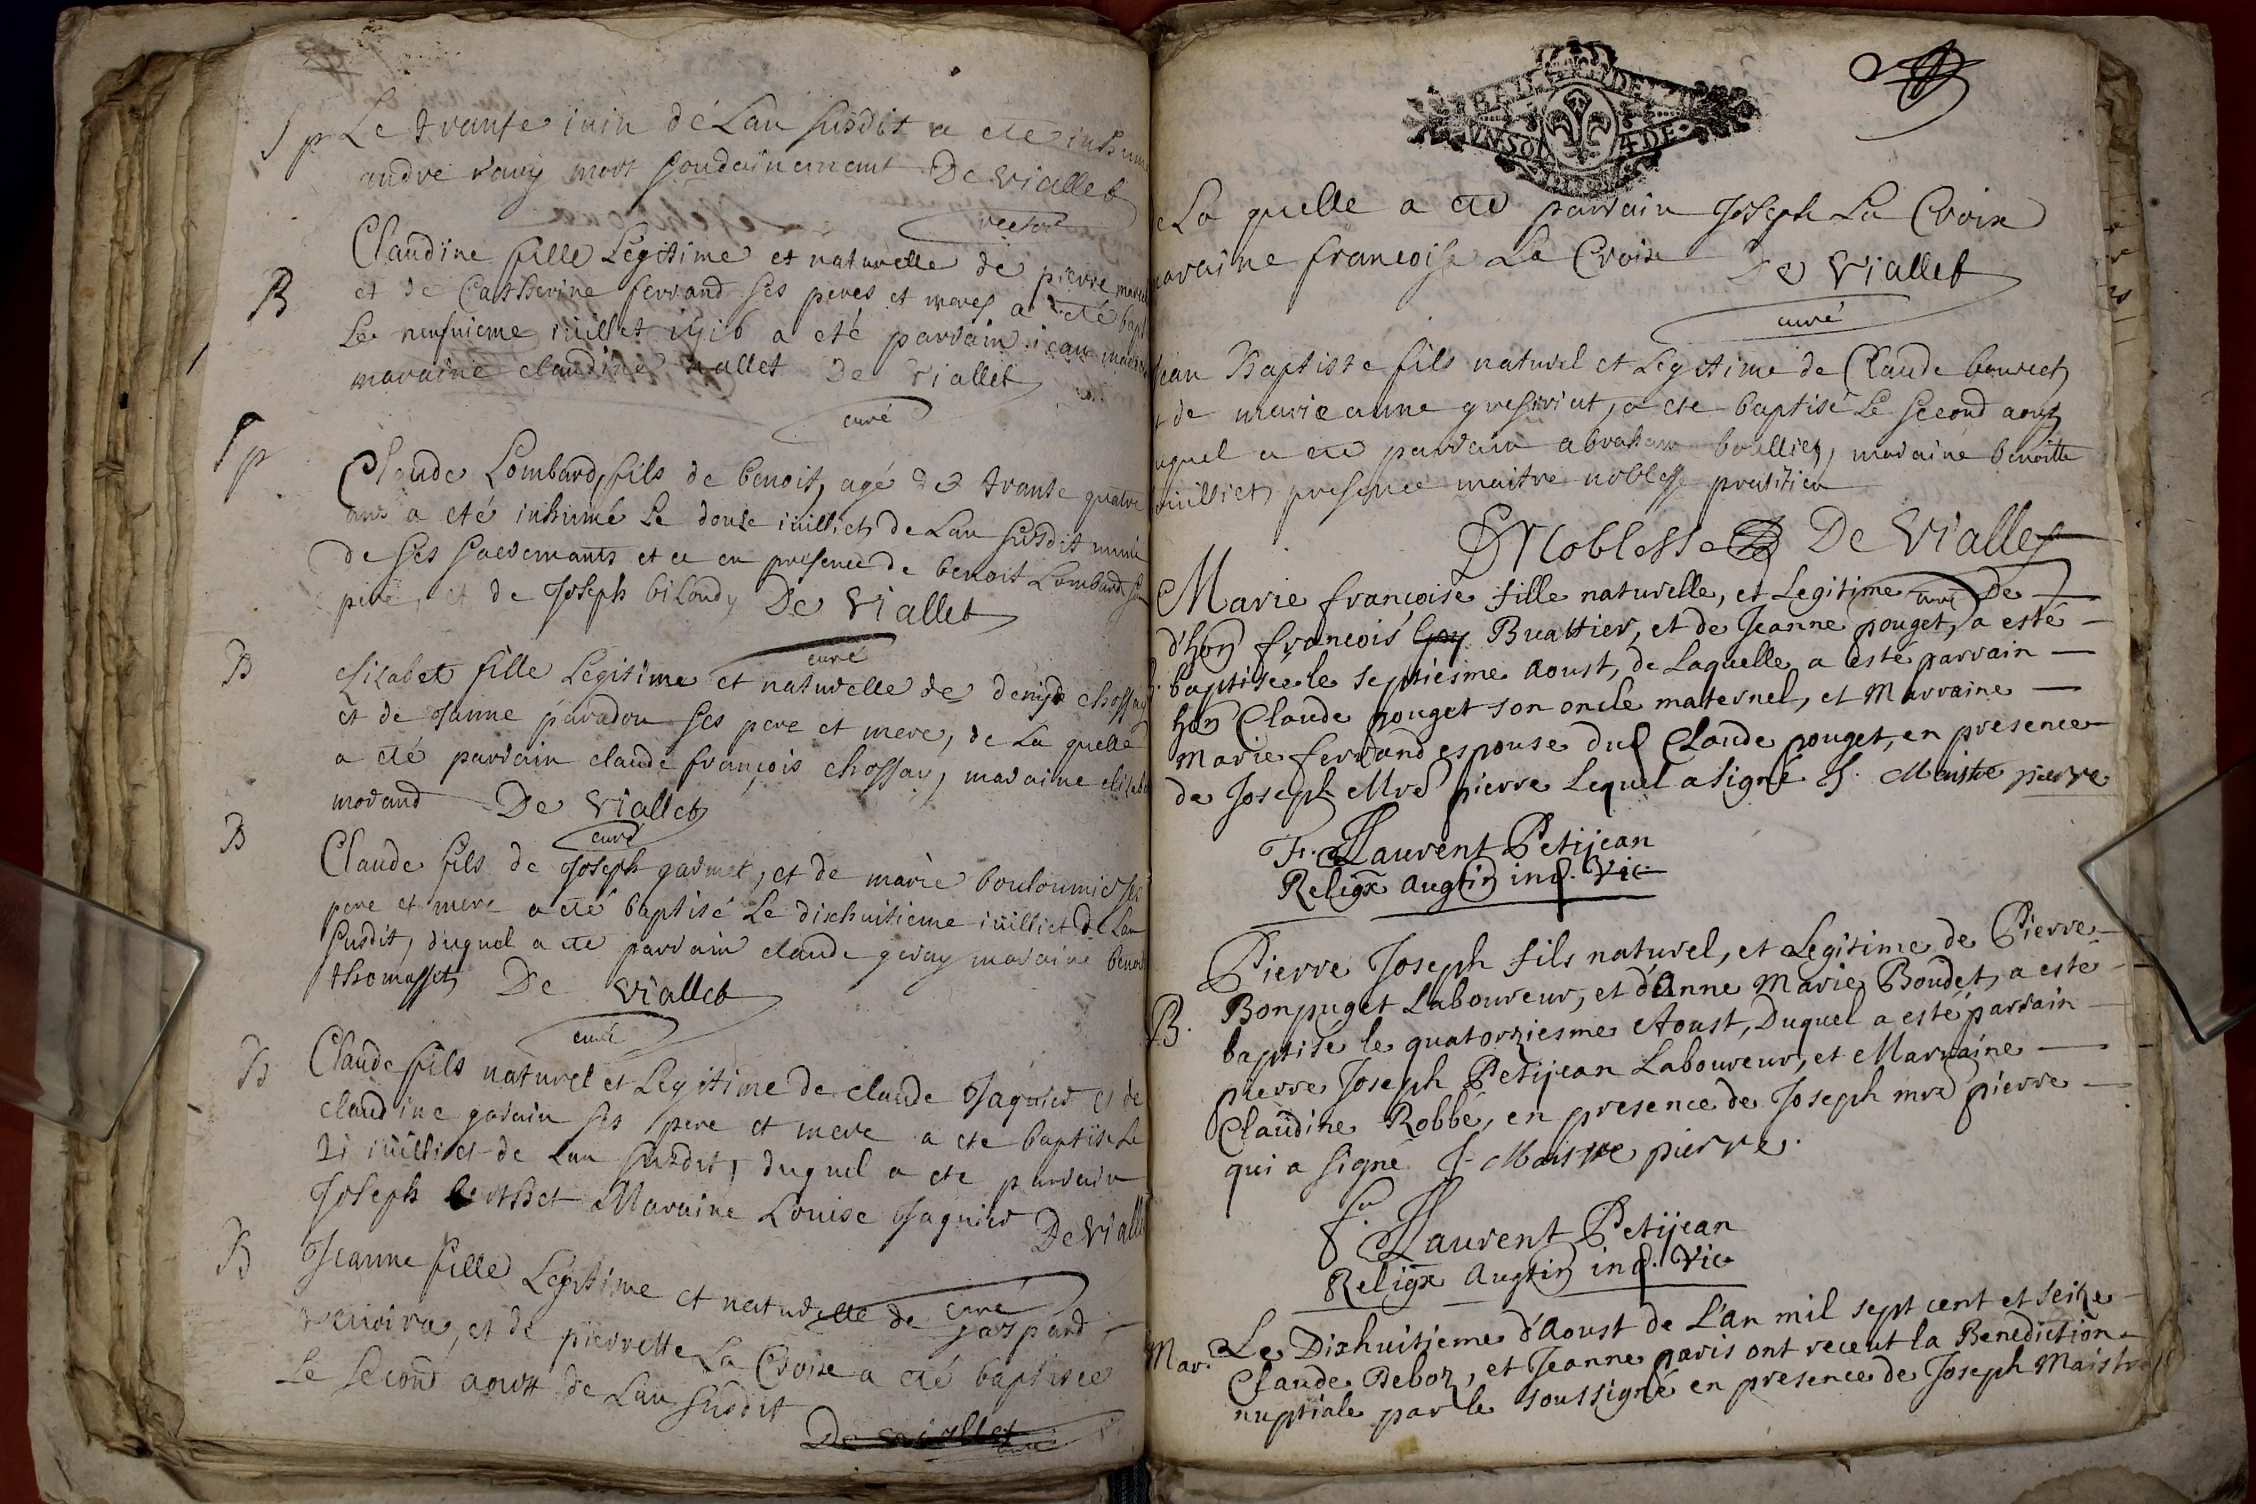 Sp Le trante iuin de Lan susdit a eté inhumé
andre mort soudainement De Viallet
curé
B Claudine fille Legitime et naturelle de pierre
et de Catherine ferrand ses peres et meres a eté bapt
Le neufuieme iuillet 1716 a eté parrain iean
maraine claudine mallet De Viallet
curé
Sp Claude Lombard, fils de benoit, agé de trante quatre
ans a eté inhumé Le douse iuilliet de Lan susdit muni
de ses sacremants et ce en presence de benoit Lombard son
pere, et de Joseph biloudy De Viallet
curé
B elisabet fille Legitime et naturelle de denys chossay
et de Janne paradou ses pere et mere, de La quelle
a eté parrain claude françois chossay, maraine elisabe
morand De Viallet
curé
B Claude fils de Joseph garnet, et de marie bouloumier ses
pere et mere a eté baptisé Le dixhuitieme iuilliet de Lan
susdit, duquel a ete parrain claude geray maraine benoi
thomasset De Viallet
curé
B Claude fils naturel et Legitime de claude Jagnier et de
claudine gorain ses pere et mere a ete baptise Le
21 iuilliet de Lan susdit, duquel a ete parrain
Joseph berthet Maraine Louise Jagnier De Viall
curé
B Jeanne fille Legitime et naturelle de gaspard
, et de pierrette La Croix a eté baptisée
Le second aoust de Lan susdit
De Viallet
curé
de La quelle a eté parrain Joseph La Croix
maraine francoise La Croix De Viallet
curé
Jean Baptiste fils naturel et Legitime de Claude bouvet
et de marie anne gresriat, a ete baptisé Le second aoust
uquel a eté parrain abraham boulliet, maraine benoitte
iuilliet presence maitre noblesse praticien
Noblesse De Viallet
curé
Marie françoise fille naturelle, et Legitime De
d'hon francois Buattier, et de Jeanne pouget, a esté
B. baptisée le septiesme Aoust, de Laquelle a esté parrain
hon Claude pouget son oncle maternel, et Marraine
Marie ferrand espouse dud Claude pouget, en presence
de Joseph Mre pierre Lequel a signé J. Maistre pierre
F. Laurent Petijean
Religx Augtin ind. Vic
Pierre Joseph fils naturel, et Legitime de Pierre
B. Bonpuget Laboureur, et d'Anne Marie Boudet, a esté
baptisé le quatorziesme Aoust, Duquel a esté parrain
pierre Joseph Petijean Laboureur, et Marraine
Claudine Robbé, en presence de Joseph mre pierre
qui a signé J. Maistre pierre.
Fr. Laurent Petijean
Religx Augtin ind. Vic
Mar. Le Dixhuitieme d'Aoust de L'an mil sept cent et seize
Claude Beboz, et Jeanne paris ont receut la Benediction
nuptiale par le soussigné en presence de Joseph Maistre